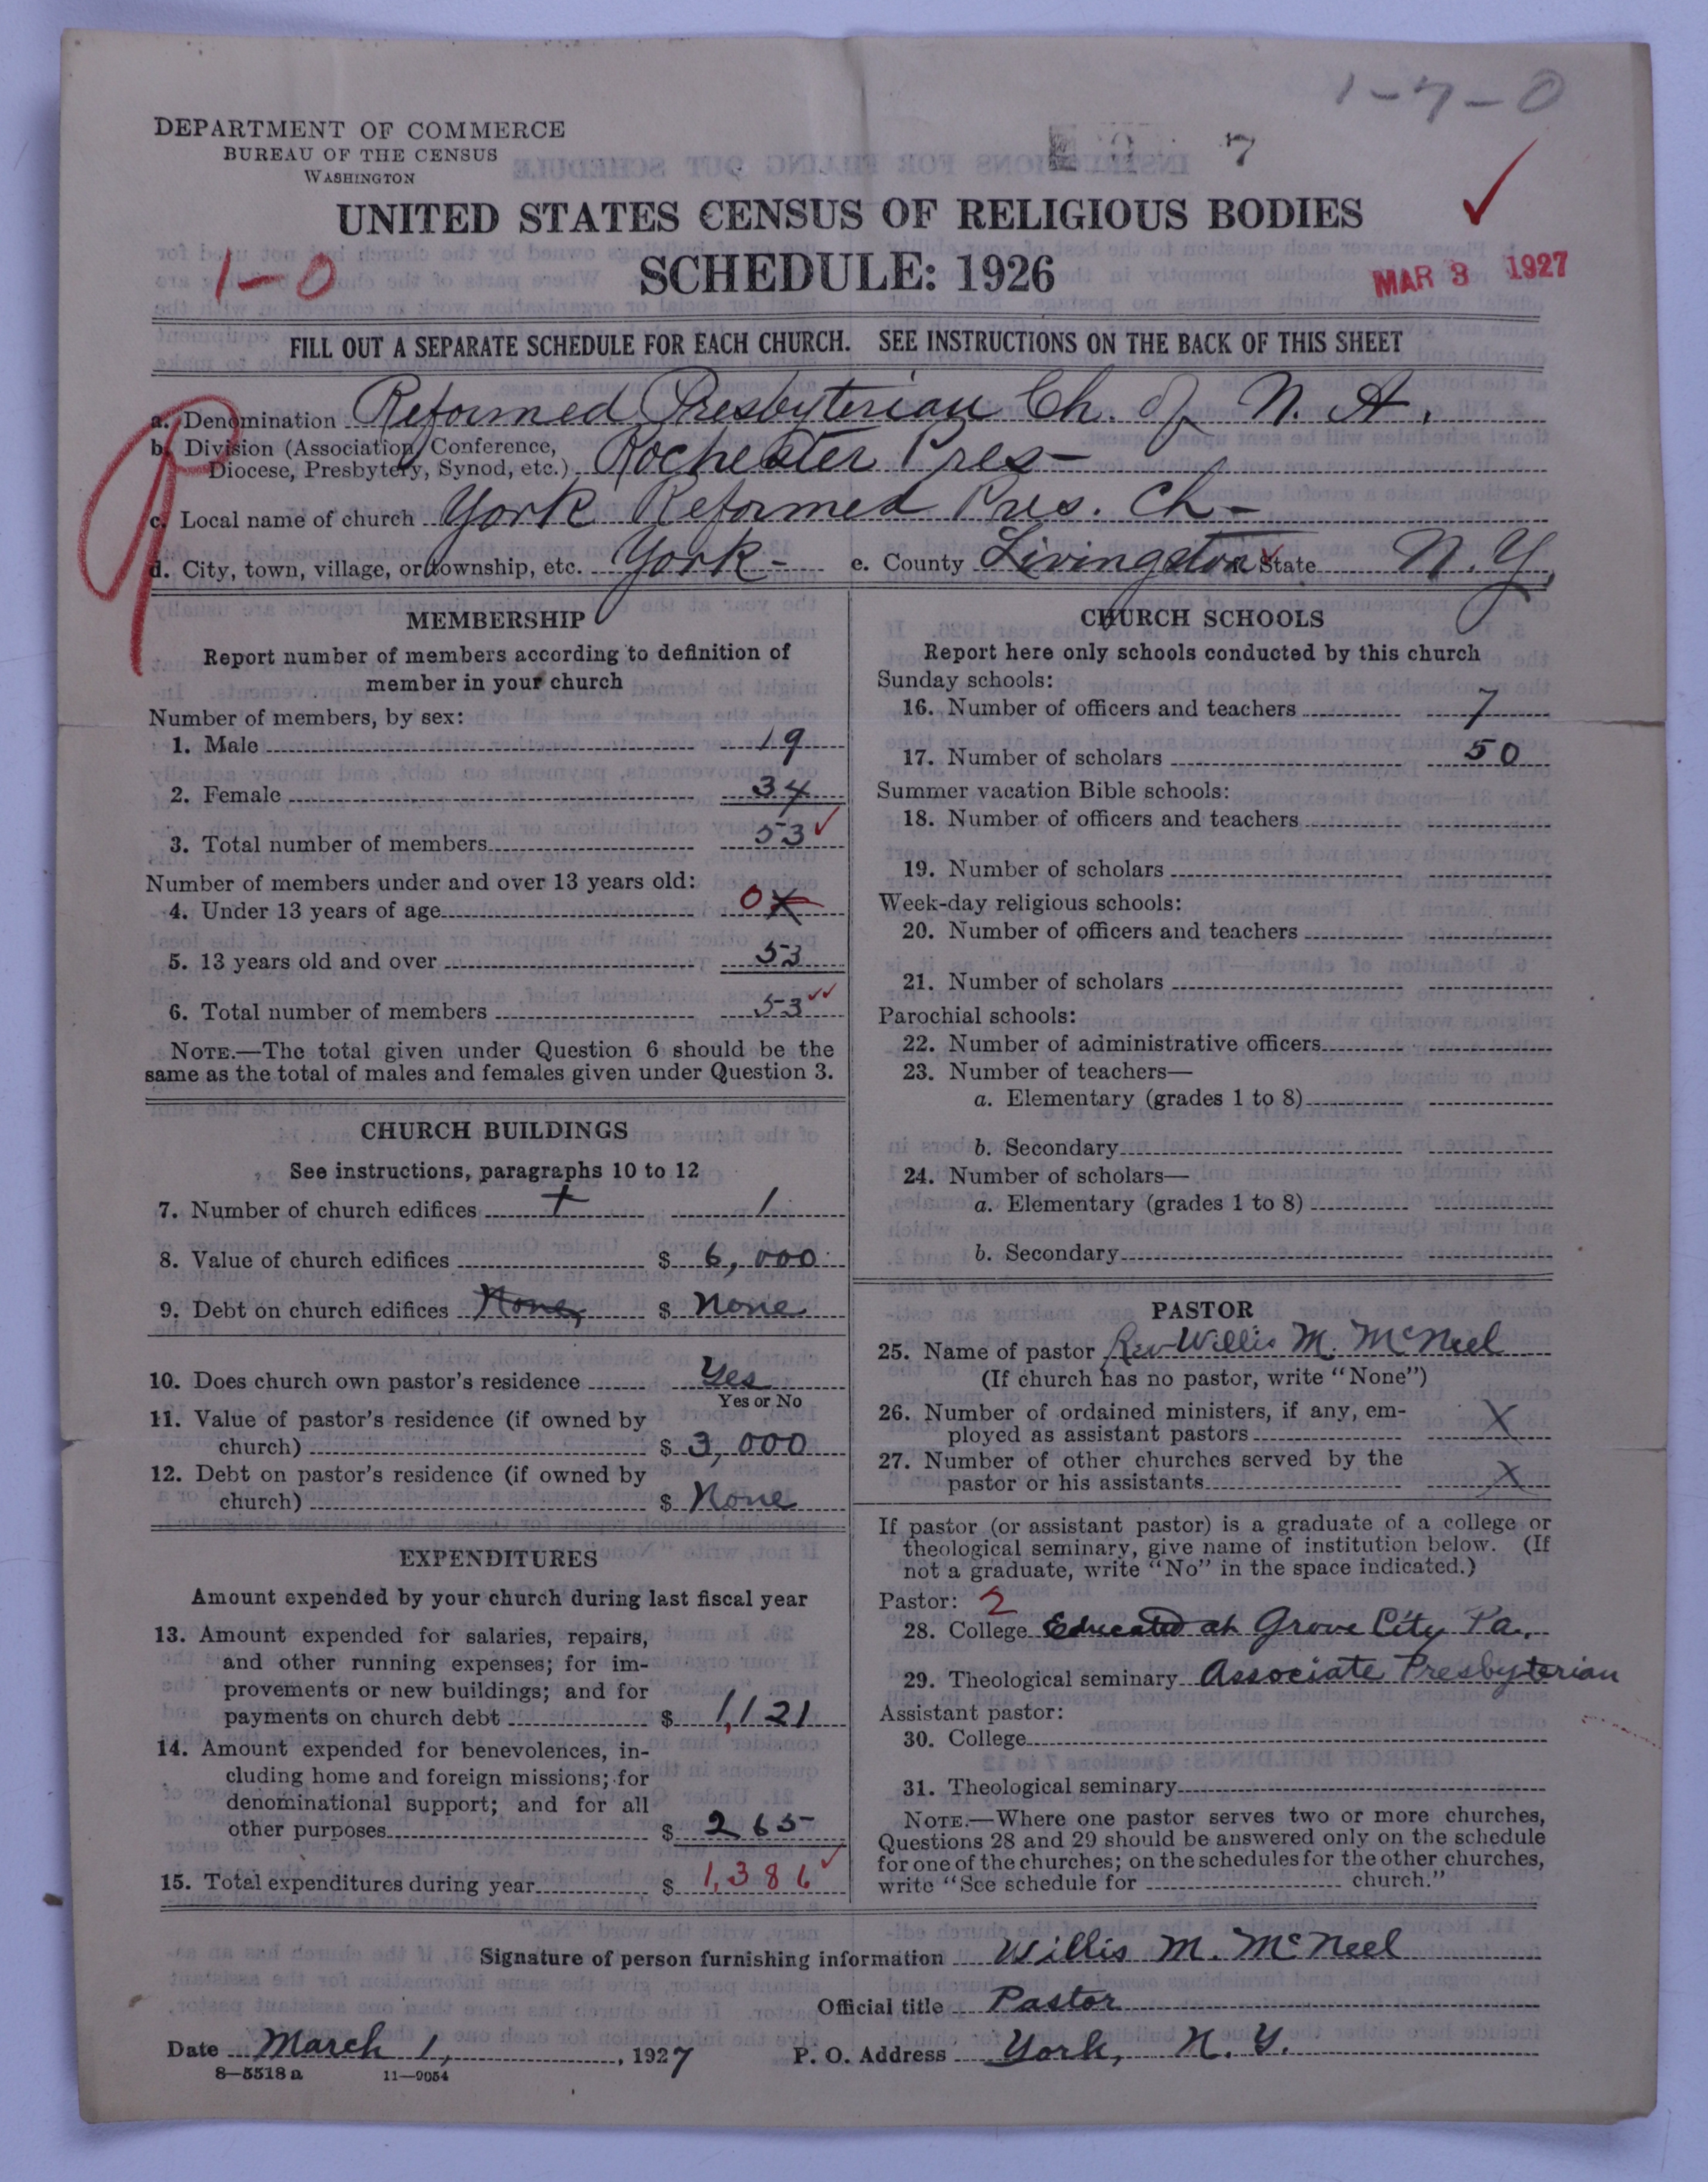 1-7-0
DEPARTMENT OF COMMERCE
BUREAU OF THE CENSUS
WASHINGTON
7
UNITED STATES CENSUS OF RELIGIOUS BODIES
SCHEDULE: 1926
1-0
MAR 3 1927
FILL OUT A SEPARATE SCHEDULE FOR EACH CHURCH. SEE INSTRUCTIONS ON THE BACK OF THIS SHEET
a. Denomination Reformed Presbyterian Ch. of N. A.
b. Division (Association, Conference,
Diocese, Presbytery, Synod, etc.) Rochester Pres-
c. Local name of church York Reformed Pres. Ch-
d. City, town, village, or township, etc. York- e. County Livingston State N.Y.
MEMBERSHIP
Report number of members according to definition of
member in your church
Number of members, by sex:
1. Male 19
2. Female 34
3. Total number of members 53
Number of members under and over 13 years old:
4. Under 13 years of age 0 X
5. 13 years old and over 53
6. Total number of members 53
NOTE.—The total given under Question 6 should be the
same as the total of males and females given under Question 3.
CHURCH BUILDINGS
See instructions, paragraphs 10 to 12
7. Number of church edifices + 1
8. Value of church edifices $ 6,000
9. Debt on church edifices None, $ None
10. Does church own pastor's residence Yes
Yes or No
11. Value of pastor's residence (if owned by
church) $ 3,000
12. Debt on pastor's residence (if owned by
church) $ None
EXPENDITURES
Amount expended by your church during last fiscal year
13. Amount expended for salaries, repairs,
and other running expenses; for im-
provements or new buildings; and for
payments on church debt $ 1,121
14. Amount expended for benevolences, in-
cluding home and foreign missions; for
denominational support; and for all
other purposes $ 265
15. Total expenditures during year $ 1,386
CHURCH SCHOOLS
Report here only schools conducted by this church
Sunday schools:
16. Number of officers and teachers 7
17. Number of scholars 50
Summer vacation Bible schools:
18. Number of officers and teachers
19. Number of scholars
Week-day religious schools:
20. Number of officers and teachers
21. Number of scholars
Parochial schools:
22. Number of administrative officers
23. Number of teachers—
a. Elementary (grades 1 to 8)
b. Secondary
24. Number of scholars—
a. Elementary (grades 1 to 8)
b. Secondary
PASTOR
25. Name of pastor Rev Willis M. McNeel
(If church has no pastor, write "None")
26. Number of ordained ministers, if any, em-
ployed as assistant pastors X
27. Number of other churches served by the
pastor or his assistants X
If pastor (or assistant pastor) is a graduate of a college or
theological seminary, give name of institution below. (If
not a graduate, write "No" in the space indicated.)
Pastor: 2
28. College Educated at Grove City Pa.
29. Theological seminary Associate Presbyterian
Assistant pastor:
30. College
31. Theological seminary
NOTE.—Where one pastor serves two or more churches,
Questions 28 and 29 should be answered only on the schedule
for one of the churches; on the schedules for the other churches,
write "See schedule for church."
Signature of person furnishing information Willis M. McNeel
Official title Pastor
Date March 1, , 1927 P. O. Address York, N. Y.
8—5518 a 11—9054